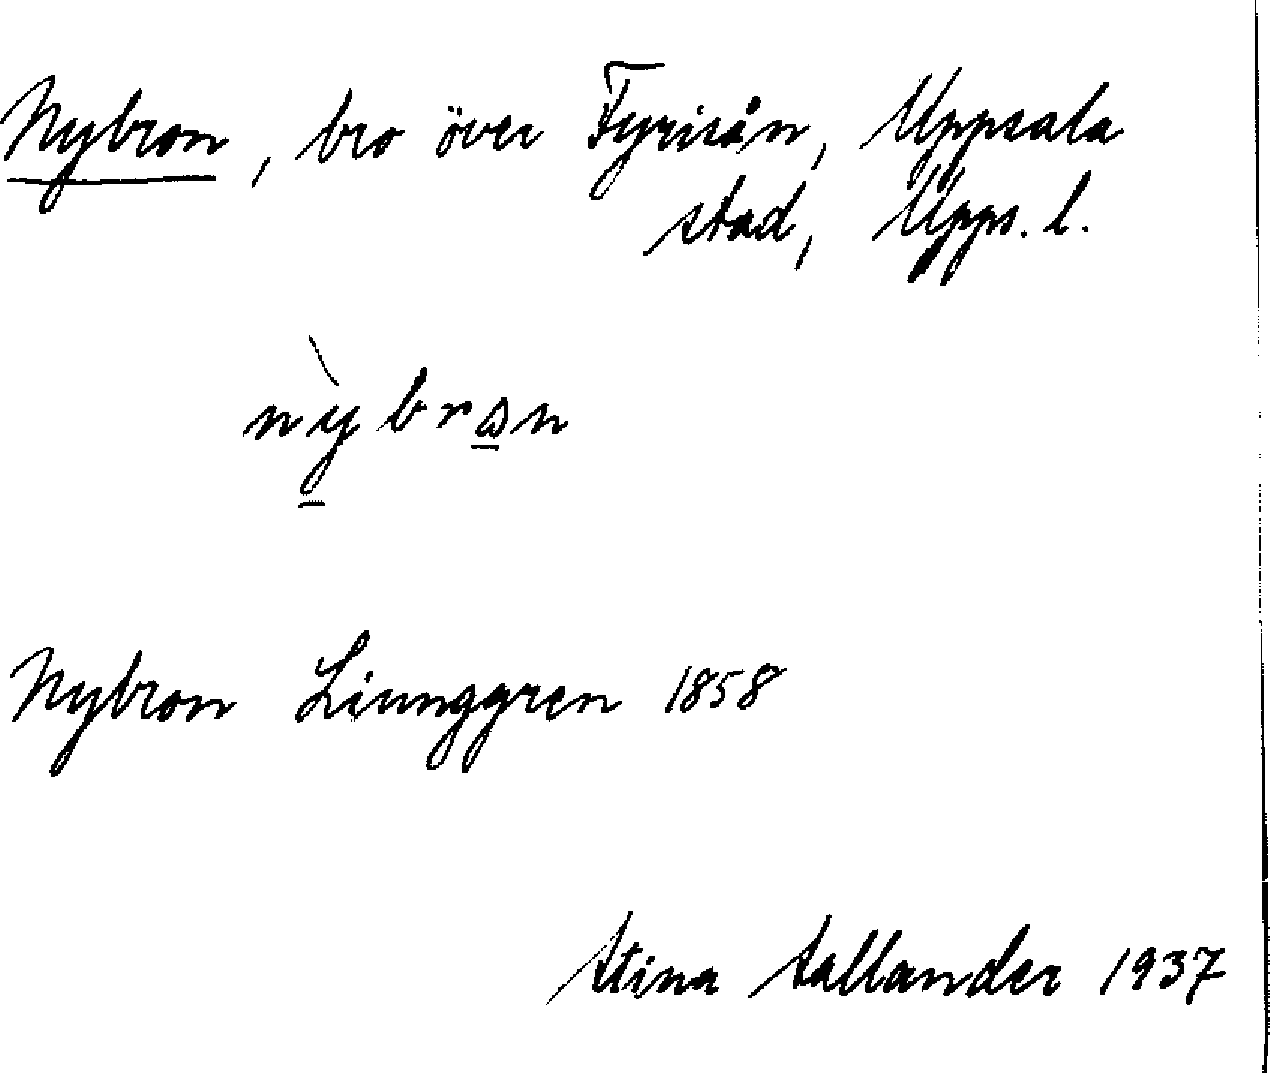 Nybron, bro över Fyrisån, Uppsala
stad, Upps. l.
nỳbrωn
Nybron Ljunggren 1858
Stina Sallander 1937